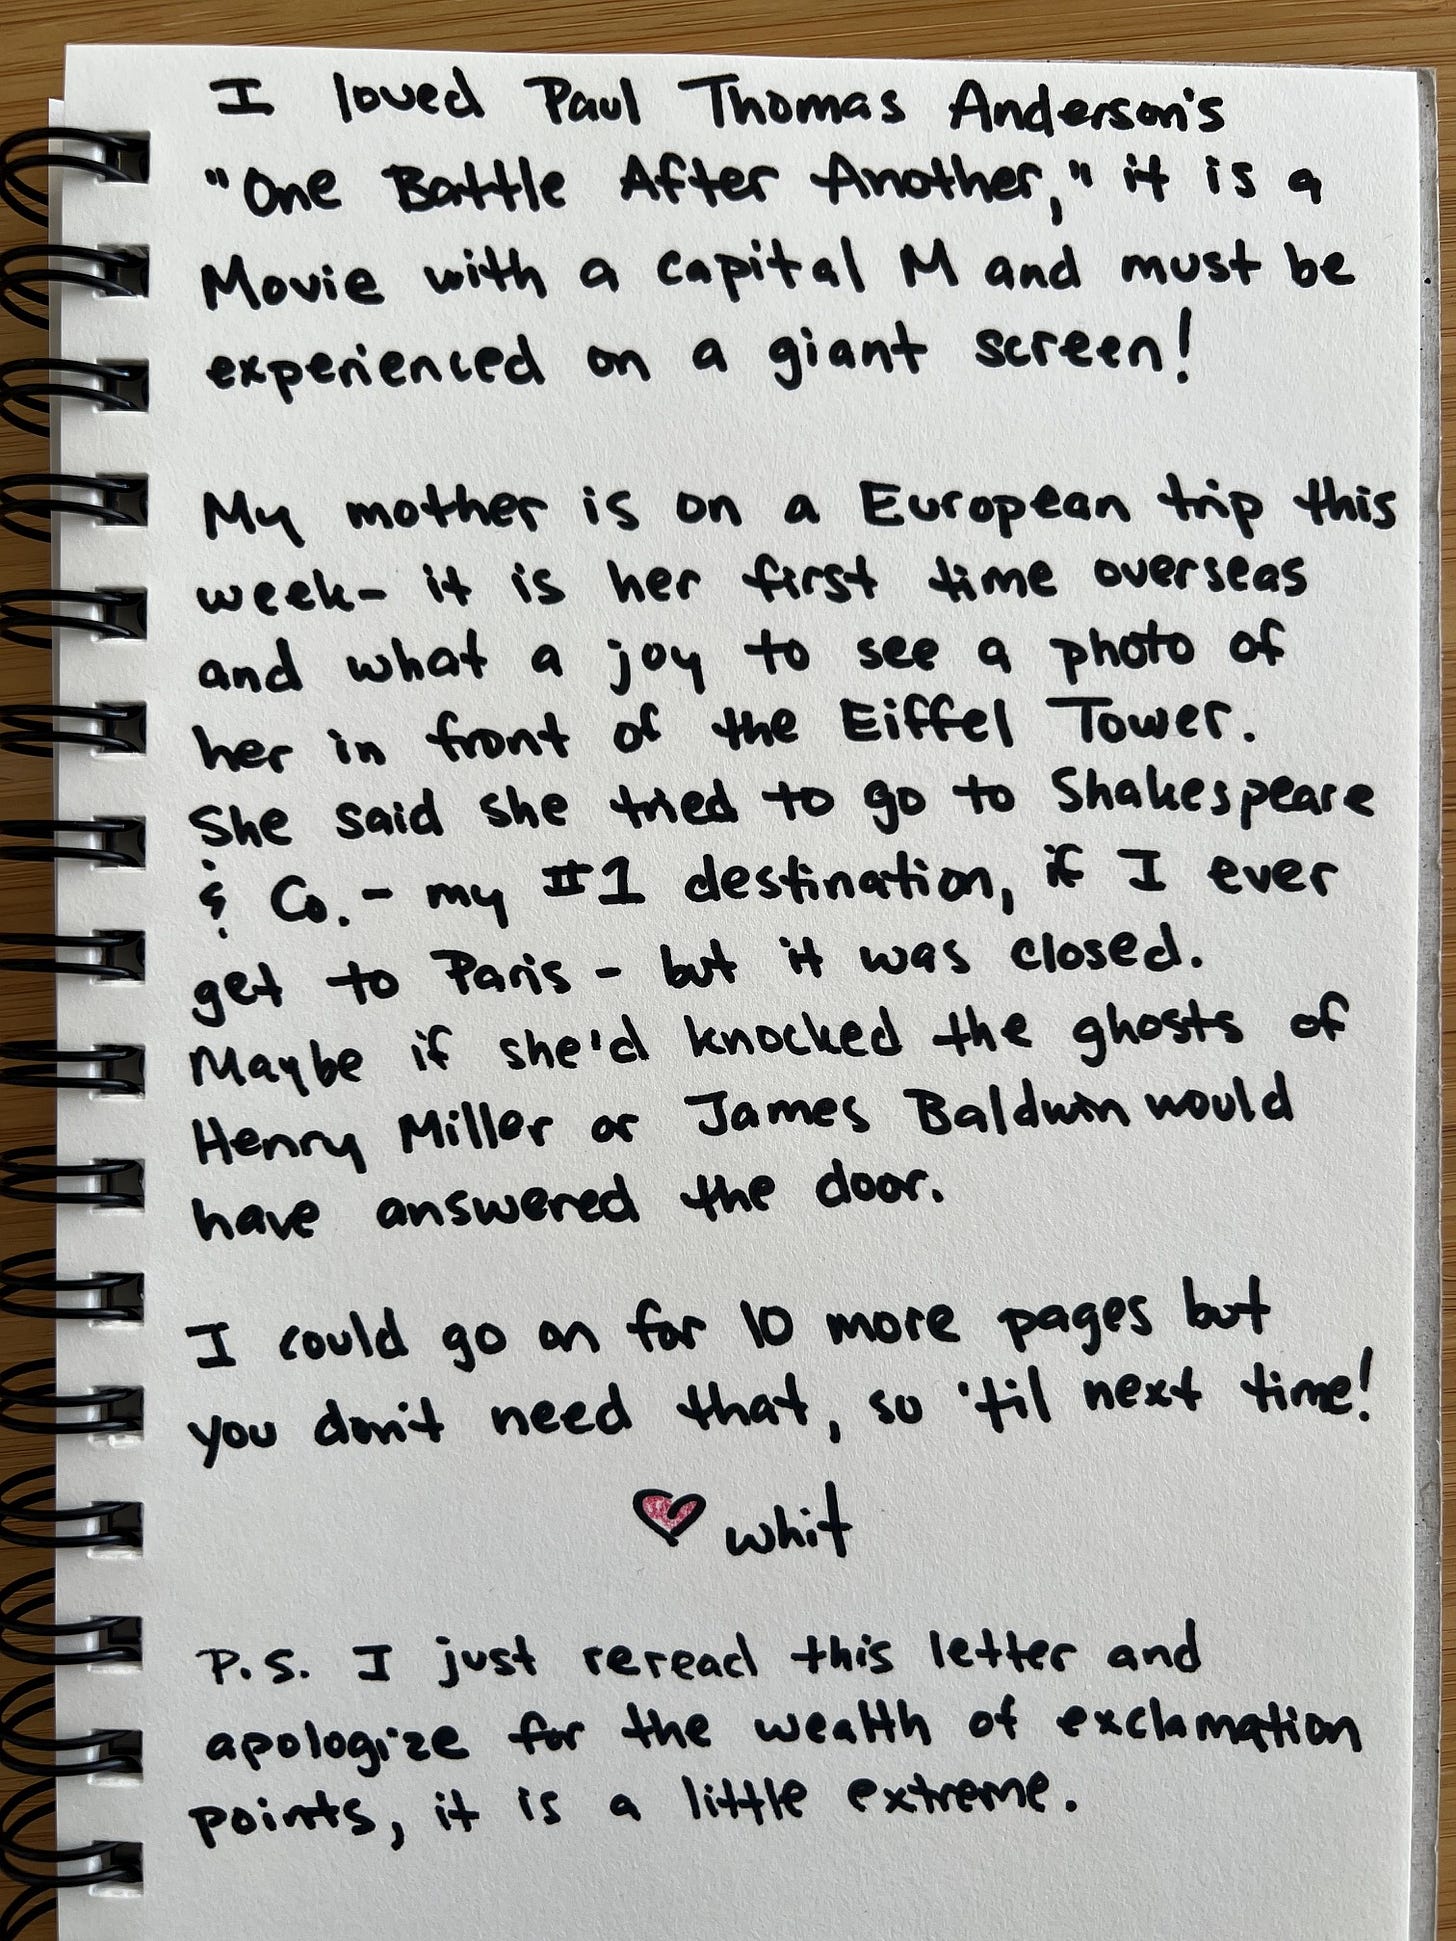 I loved Paul Thomas Anderson's
"One Battle After Another," it is a
Movie with a capital M and must be
experienced on a giant screen!
My mother is on a European trip this
week- it is her first time overseas
and what a joy to see a photo of
her in front of the Eiffel Tower.
She said she tried to go to Shakespeare
& Co. - my #1 destination, if I ever
get to Paris - but it was closed.
Maybe if she'd knocked the ghosts of
Henry Miller or James Baldwin would
have answered the door.
I could go on for 10 more pages but
you don't need that, so 'til next time!
whit
P.S. I just reread this letter and
apologize for the wealth of exclamation
points, it is a little extreme.